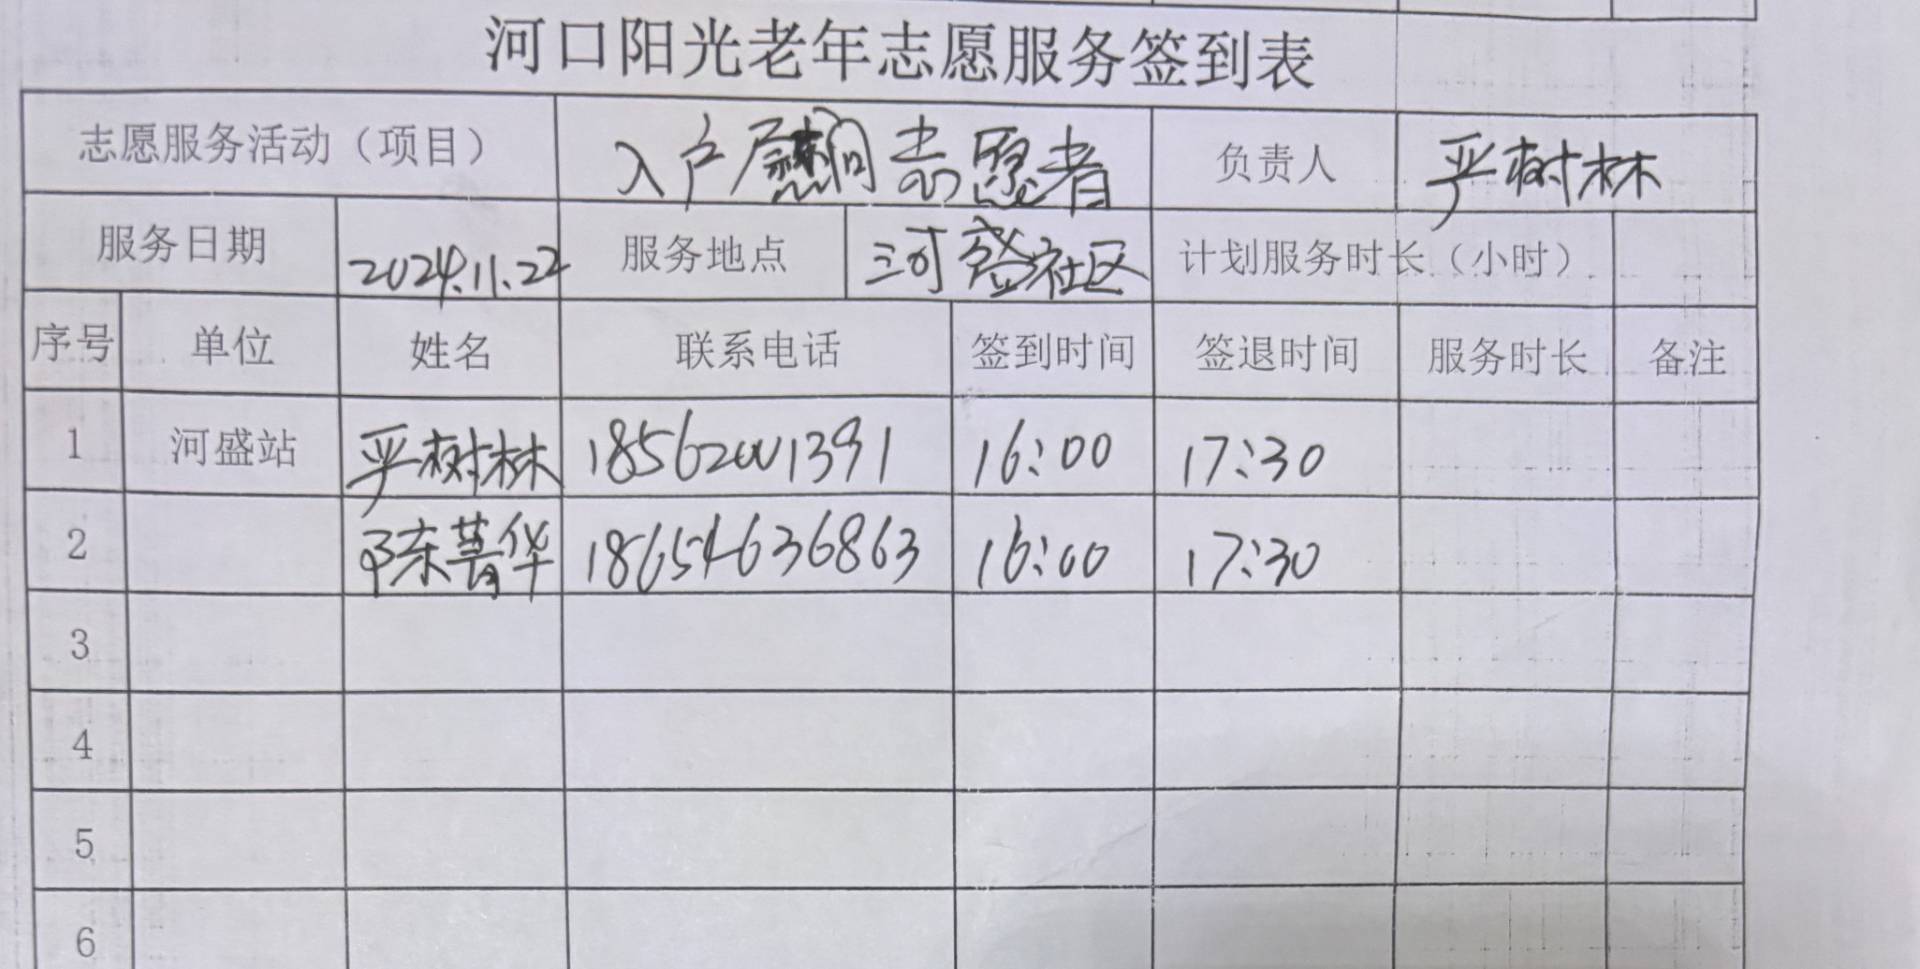 河口阳光老年志愿服务签到表
志愿服务活动（项目） 入户慰问志愿者 负责人 严树林
服务日期 2024.11.22 服务地点 河盛社区 计划服务时长（小时）
序号 单位 姓名 联系电话 签到时间 签退时间 服务时长 备注
1 河盛站 严树林 18562001391 16:00 17:30
2 陈菁华 18654636863 16:00 17:30
3
4
5
6